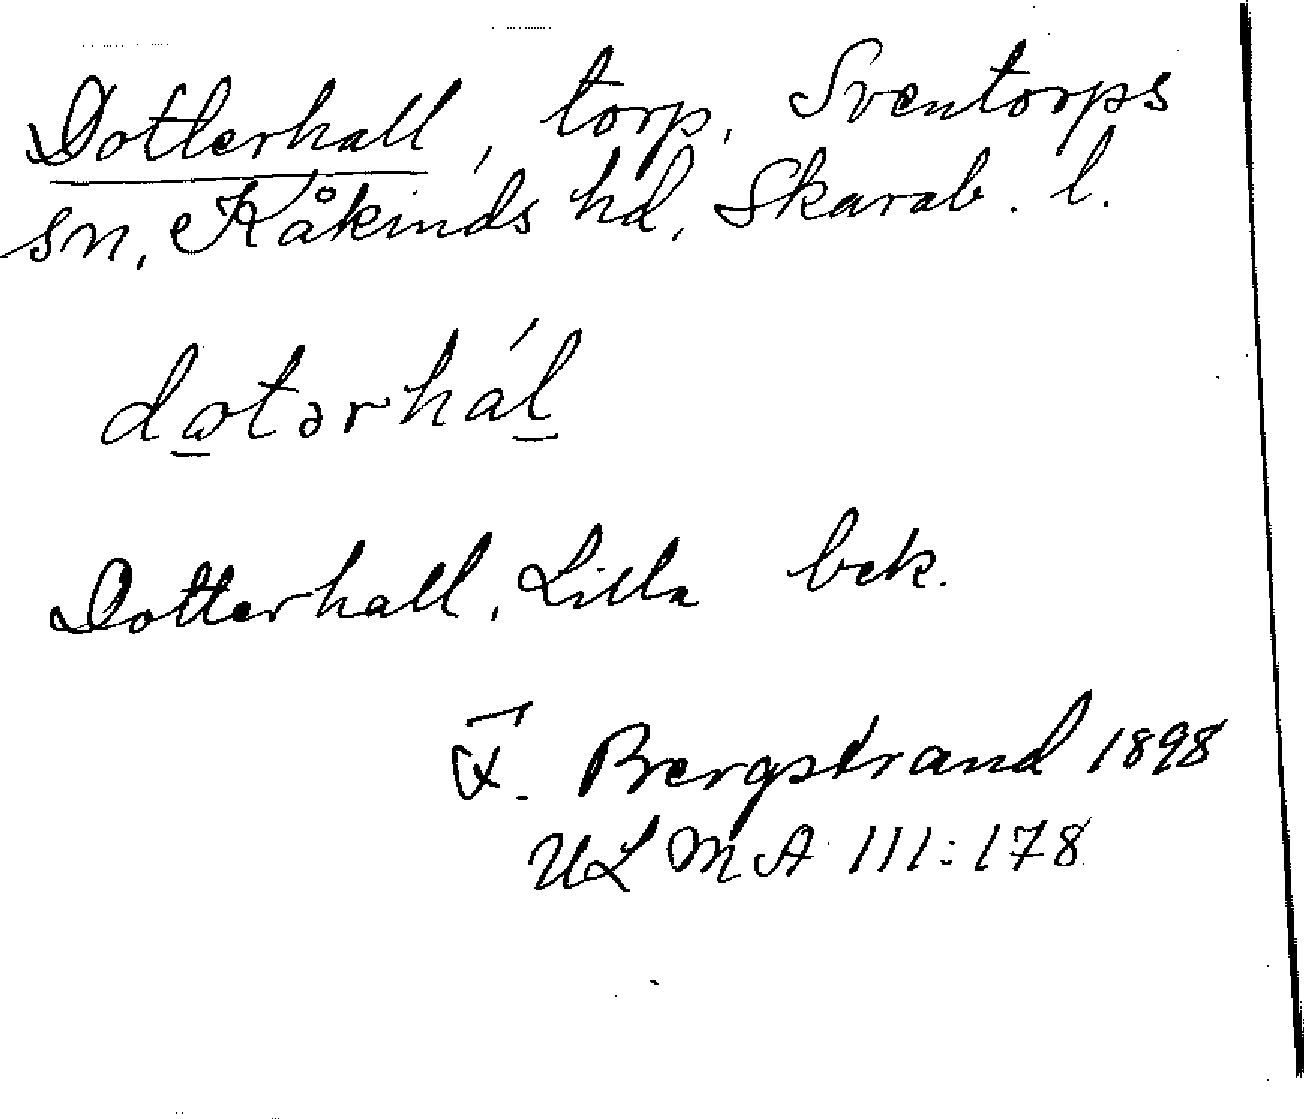 Dotterhall, torp, Sventorps
sn, Kåkinds hd, Skarab. l.
dαtərhál
Dotterhall, Lilla bek.
F. Bergstrand 1898
ULMA 111:178